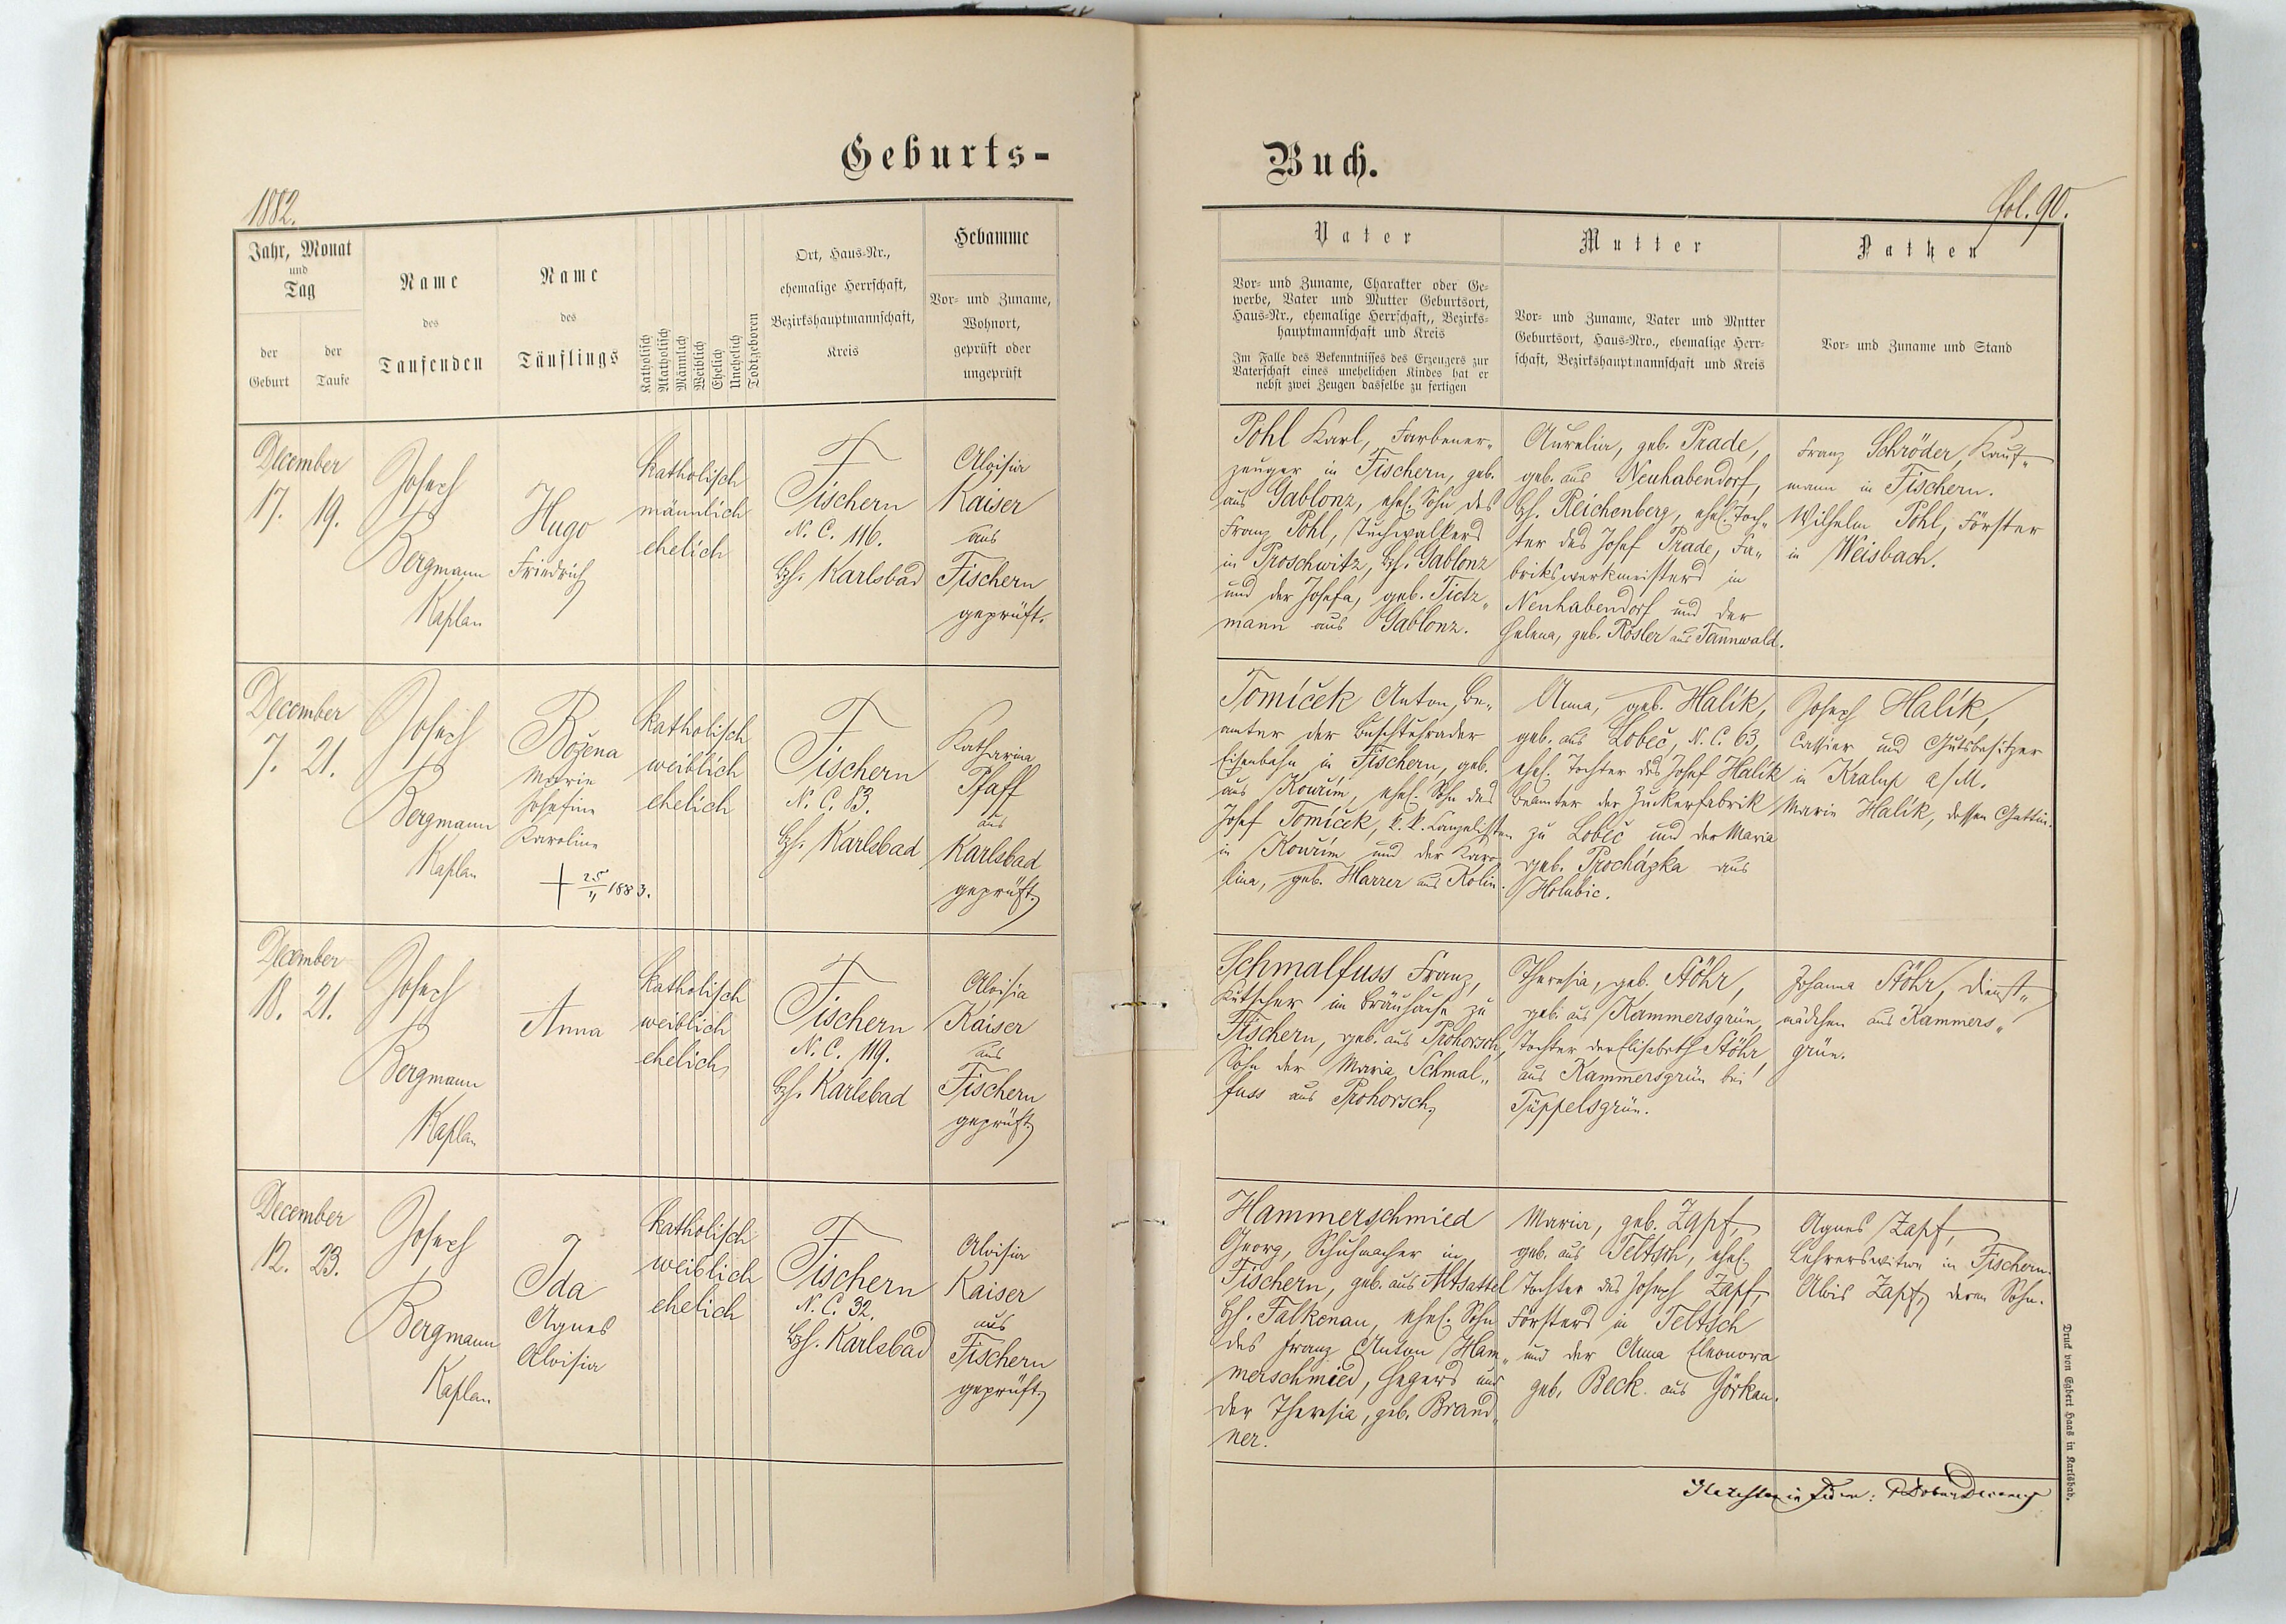 Geburts-
1882.
Jahr, Monat
und
Tag
der
Geburt
der
Taufe
Name
des
Taufenden
Name
des
Täuflings
Katholisch
Akatholisch
Männlich
Weiblich
Ehelich
Unehelich
Todtgeboren
Ort, Haus-Nr.,
ehemalige Herrschaft,
Bezirkshauptmannschaft,
Kreis
Hebamme
Vor- und Zuname,
Wohnort,
geprüft oder
ungeprüft
December
17. 19.
Joseph
Bergmann
Kaplan
Hugo
Friedrich
katholisch
männlich
ehelich
Fischern
N. C. 116.
Bzh. Karlsbad
Aloisia
Kaiser
aus
Fischern
geprüft.
December
7. 21.
Joseph
Bergmann
Kaplan
Božena
Marie
Josefine
Karoline
† 25/11 1883.
katholisch
weiblich
ehelich
Fischern
N. C. 83.
Bzh. Karlsbad
Katharina
Pfaff
aus
Karlsbad
geprüft.
December
18. 21.
Joseph
Bergmann
Kaplan
Anna
katholisch
weiblich
ehelich
Fischern
N. C. 119.
Bzh. Karlsbad
Aloisia
Kaiser
aus
Fischern
geprüft.
December
12. 23.
Joseph
Bergmann
Kaplan
Ida
Agnes
Aloisia
katholisch
weiblich
ehelich
Fischern
N. C. 32.
Bzh. Karlsbad
Aloisia
Kaiser
aus
Fischern
geprüft.
Buch.
fol. 90.
Vater
Vor- und Zuname, Charakter oder Ge-
werbe, Vater und Mutter Geburtsort,
Haus-Nr., ehemalige Herrschaft,, Bezirks-
hauptmannschaft und Kreis
Im Falle des Bekenntnisses des Erzeugers zur
Vaterschaft eines unehelichen Kindes hat er
nebst zwei Zeugen dasselbe zu fertigen
Mutter
Vor- und Zuname, Vater und Mntter
Geburtsort, Haus-Nro., ehemalige Herr-
schaft, Bezirkshauptmannschaft und Kreis
Pathen
Vor- und Zuname und Stand
Pohl Karl, Farbener-
zeuger in Fischern, geb.
aus Gablonz, ehel. Sohn des
Franz Pohl, Tuchwalkers
in Proschwitz, Bzh. Gablonz
und der Josefa, geb. Tietz-
mann aus Gablonz.
Aurelia, geb. Prade,
geb. aus Neuhabendorf,
Bzh. Reichenberg, ehel. Toch-
ter des Josef Prade, Fa-
brikswerkmeisters in
Neuhabendorf und der
Helena, geb. Rösler aus Tannwald.
Franz Schröder, Kauf-
mann in Fischern.
Wilhelm Pohl, Förster
in Weisbach.
Tomíček Anton, Be-
amter der Buschtěhrader
Eisenbahn in Fischern, geb.
aus Kouřim, ehel. Sohn des
Josef Tomíček, k. k. Kanzelisten
in Kouřim und der Karo-
lina, geb. Harrer aus Kolin.
Anna, geb. Halík,
geb. aus Lobeč, N. C. 63,
ehel. Tochter des Josef Halík
Beamter der Zuckerfabrik
zu Lobeč und der Maria
geb. Procházka aus
Holubic.
Joseph Halík,
Cassier und Gutsbesitzer
in Kralup a/M.
Marie Halík, dessen Gattin.
Schmalfuss Franz,
Kutscher im Bräuhause zu
Fischern, geb. aus Prohorsch,
Sohn der Maria Schmal-
fuss aus Prohorsch,
Theresia, geb. Stöhr,
geb. aus Kammersgrün,
Tochter der Elisabeth Stöhr,
aus Kammersgrün bei
Tüppelsgrün.
Johanna Stöhr, Dienst-
mädchen aus Kammers-
grün.
Hammerschmied
Georg, Schuhmacher in
Fischern, geb. aus Altsattel
Bzh. Falkenau, ehel. Sohn
des Franz Anton Ham-
merschmied, Hegers und
der Theresia, geb. Brand-
ner.
Maria, geb. Zapf,
geb. aus Teltsch, ehel.
Tochter des Joseph Zapf,
Försters in Teltsch
und der Anna Eleonora
geb. Beck aus Görkau.
Agnes Zapf,
Lehrerswitwe in Fischern.
Alois Zapf, deren Sohn.
Druck von Egbert Haas in Karlsbad.